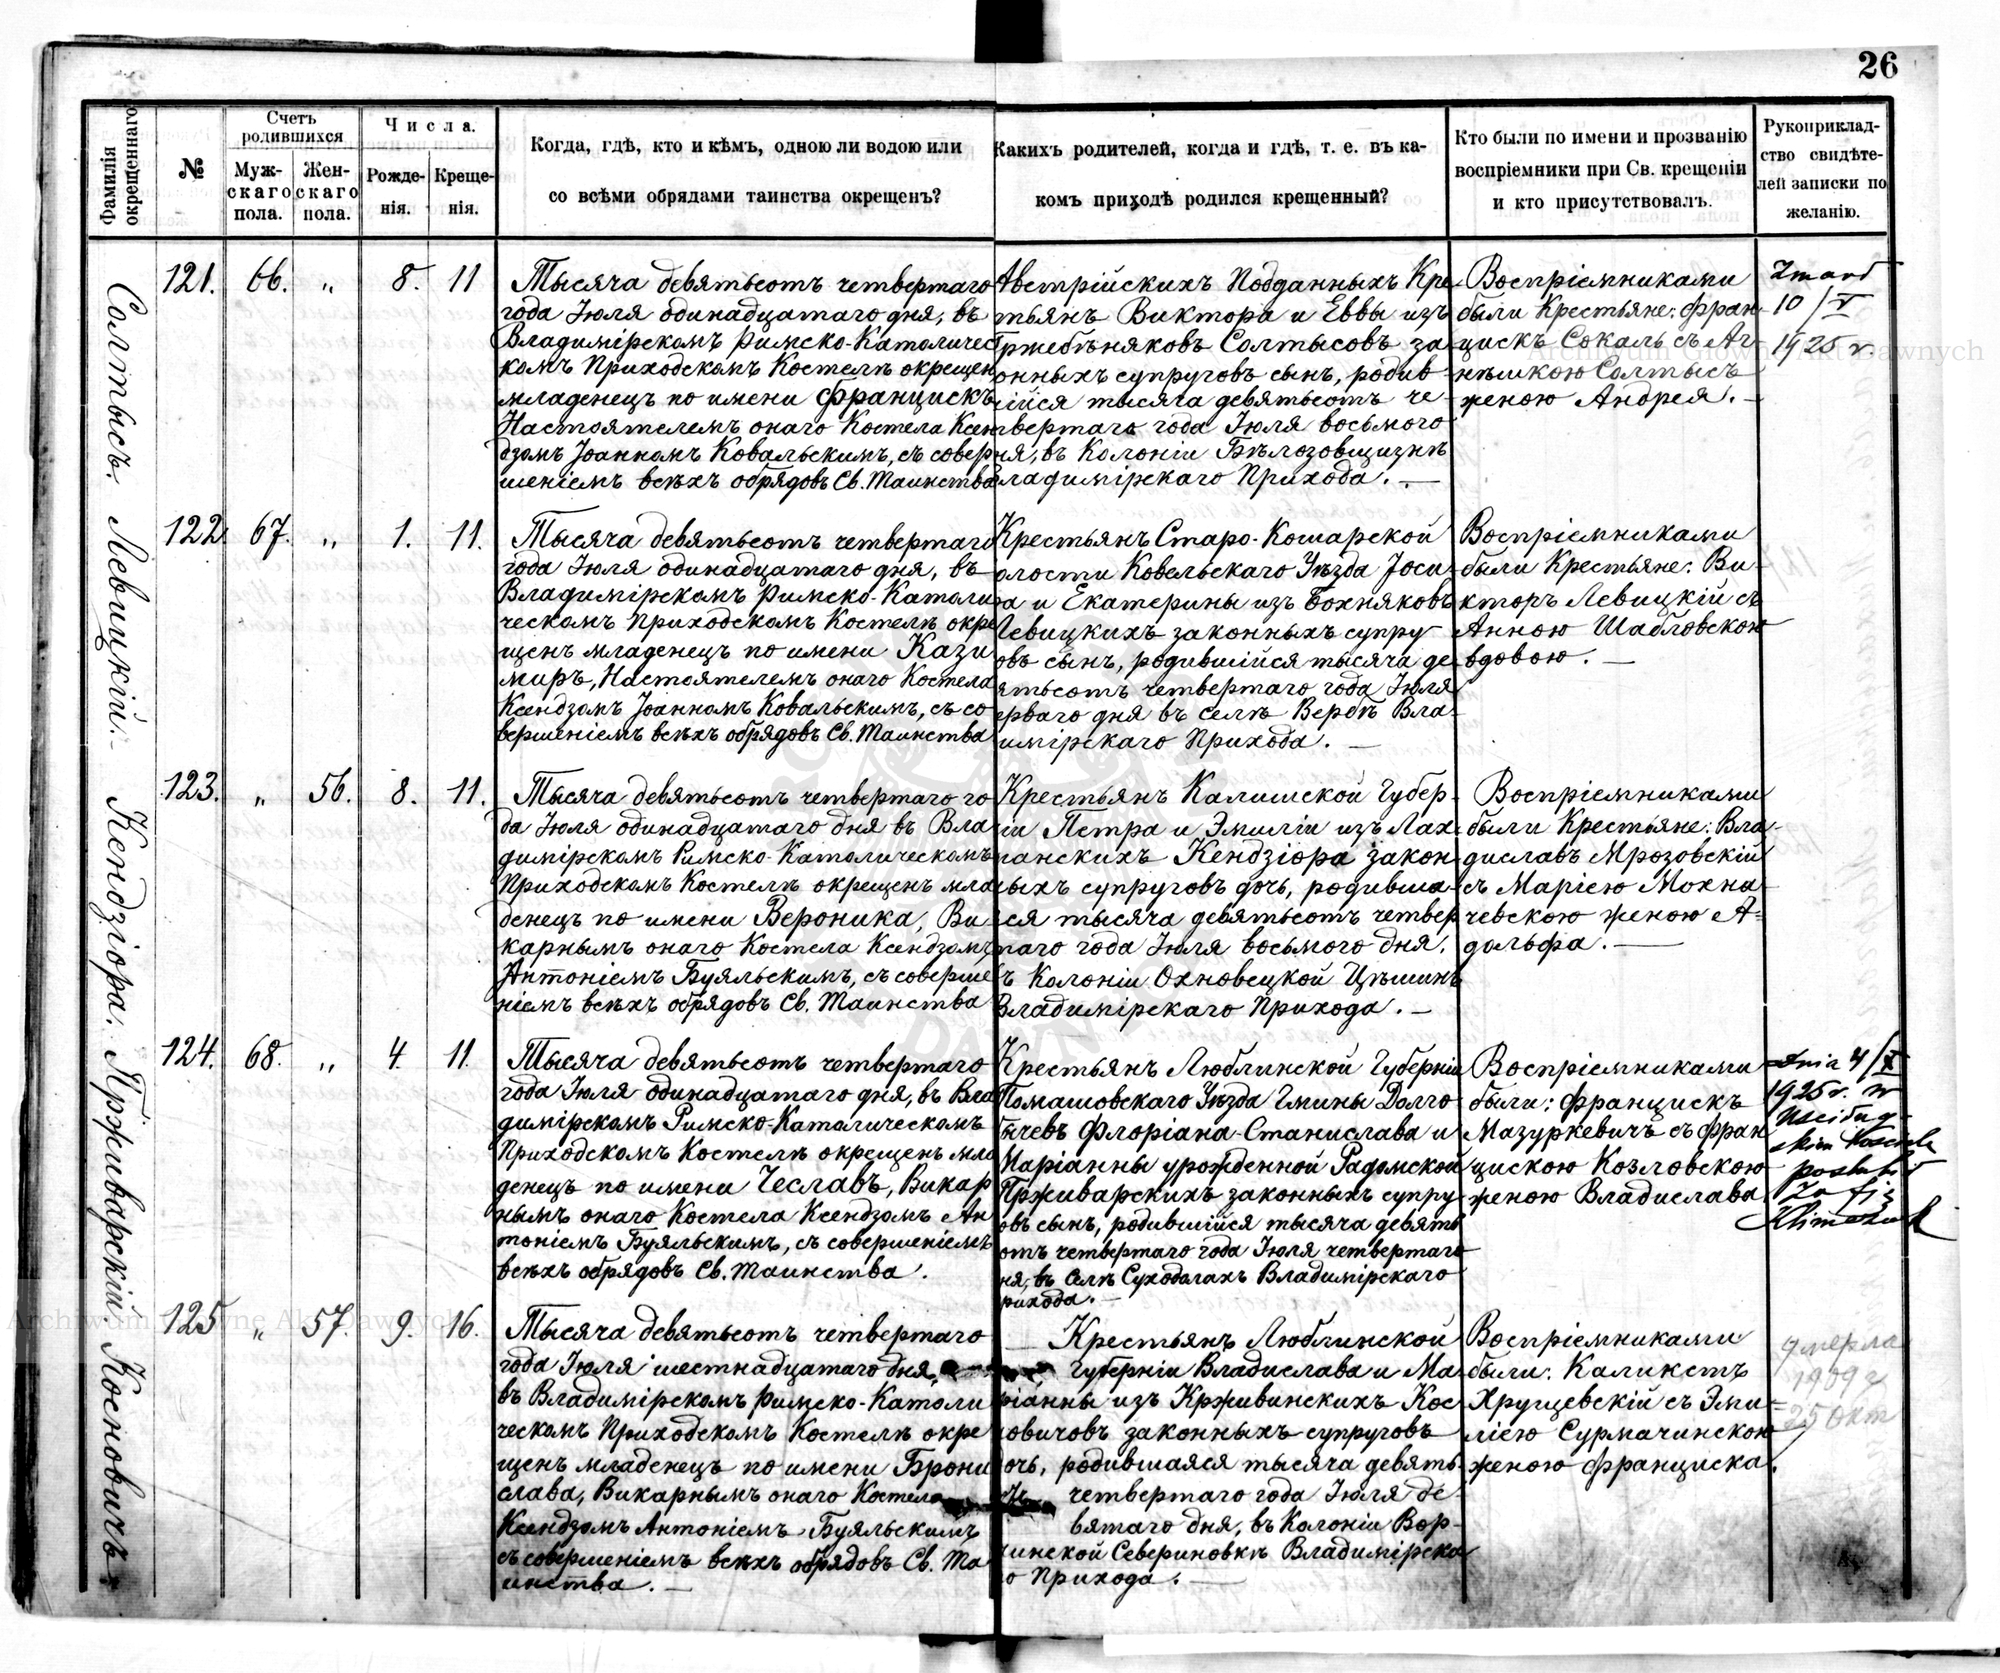 26
Фамилія окрещеннаго
№
Счетъ родившихся
Муж-
скаго
пола.
Жен-
скаго
пола.
Числа.
Рожде-
нія.
Креще-
нія.
Когда, гдѣ, кто и кѣмъ, одною ли водою или
со всѣми обрядами таинства окрещенъ?
Какихъ родителей, когда и гдѣ, т. е. въ ка-
комъ приходѣ родился крещенный?
Кто были по имени и прозванію
воспріемники при Св. крещеніи
и кто присутствовалъ.
Рукоприклад-
ство свидѣте-
лей записки по
желанію.
Солтысъ.
121. 66. „ 8. 11
Тысяча девятьсотъ четвертаго
года Іюля одинадцатаго дня, въ
Владимірскомъ Римско-Католичес
комъ Приходскомъ Костелѣ окрещен
младенецъ по имени Францискъ
Настоятелемъ онаго Костела Ксен
дзомъ Іоанномъ Ковальскимъ, съ совер
шеніемъ всѣхъ обрядовъ Св. Таинства
Австрійскихъ Подданныхъ Кре-
тьянъ Виктора и Еввы изъ
ржебѣняковъ Солтысовъ за-
онныхъ супруговъ сынъ, родив-
ійся тысяча девятьсотъ че-
твертаго года Іюля восьмого
ня, въ Колоніи Бѣлозовщизнѣ
ладимірскаго Прихода. —
Воспріемниками
были Крестьяне: Фран-
цискъ Сокаль съ Аг-
нѣшкою Солтысъ
женою Андрея. —
Zmarł
10/V
1925 r.
Левицкій.
122. 67. „ 1. 11.
Тысяча девятьсотъ четвертаго
года Іюля одинадцатаго дня, въ
Владимірскомъ Римско-Католи
ческомъ Приходскомъ Костелѣ окре
щенъ младенецъ по имени Кази
миръ, Настоятелемъ онаго Костела
Ксендзомъ Іоанномъ Ковальскимъ, съ со
вершеніемъ всѣхъ обрядовъ Св. Таинства
Крестьянъ Старо-Кошарской
олости Ковельскаго Уѣзда Іоси-
а и Екатерины изъ Бохняковъ
Левицкихъ законныхъ супру
овъ сынъ, родившійся тысяча де-
ятьсотъ четвертаго года Іюля
ерваго дня въ селѣ Вербѣ Вла-
имірскаго Прихода. —
Воспріемниками
были Крестьяне: Ви-
кторъ Левицкій съ
Анною Шабловскою
вдовою. —
Кендзіора.
123. „ 56. 8. 11.
Тысяча девятьсотъ четвертаго го
да Іюля одинадцатаго дня въ Вла
димірскомъ Римско-Католическомъ
Приходскомъ Костелѣ окрещенъ мла
денецъ по имени Вероника, Ви-
карнымъ онаго Костела Ксендзомъ
Антоніемъ Буяльскимъ, съ соверше
ніемъ всѣхъ обрядовъ Св. Таинства
Крестьянъ Калишской Губер-
іи Петра и Эмиліи изъ Лах-
манскихъ Кендзіора закон-
ыхъ супруговъ дочь, родивша-
ся тысяча девятьсотъ четвер
таго года Іюля восьмого дня,
ъ Колоніи Охновецкой Цѣшинъ
Владимірскаго Прихода. —
Воспріемниками
были Крестьяне: Вла-
диславъ Мрозовскій
съ Маріею Мохна-
чевскою женою А-
дольфа. —
Прживарскій
124. 68. „ 4. 11.
Тысяча девятьсотъ четвертаго
года Іюля одинадцатаго дня, въ Вла
димірскомъ Римско-Католическомъ
Приходскомъ Костелѣ окрещенъ мла
денецъ по имени Чеславъ, Викар
нымъ онаго Костела Ксендзомъ Ан
тоніемъ Буяльскимъ, съ совершеніемъ
всѣхъ обрядовъ Св. Таинства.
Крестьянъ Люблинской Губерніи
Томашовскаго Уѣзда Гмины Долго
бычевъ Флоріана-Станислава и
Маріанны урожденной Радомской
Прживарскихъ законныхъ супру
овъ сынъ, родившійся тысяча девять
отъ четвертаго года Іюля четвертаго
ня, въ Селѣ Суходолахъ Владимірскаго
рихода. —
Воспріемниками
были: Францискъ
Мазуркевичъ съ Фран
цискою Козловскою
женою Владислава
dnia 4/X
1925 r. w
Uściług-
skim Kościele
poślubił
Zofię
Косновичъ
125 „ 57. 9. 16.
Тысяча девятьсотъ четвертаго
года Іюля шестнадцатаго дня,
въ Владимірскомъ Римско-Католи
ческомъ Приходскомъ Костелѣ окре
щенъ младенецъ по имени Брони
слава, Викарнымъ онаго Костела
Ксендзомъ Антоніемъ Буяльскимъ
съ совершеніемъ всѣхъ обрядовъ Св. Та
инства. —
Крестьянъ Люблинской
Губерніи Владислава и Ма-
ріанны изъ Крживинскихъ Кос
новичовъ законныхъ супруговъ
очь, родившаяся тысяча девять
четвертаго года Іюля де-
вятаго дня, въ Колоніи Вор-
чинской Севериновкѣ Владимірска
о Прихода. —
Воспріемниками
были: Каликстъ
Хрущевскій съ Эми-
ліею Сурмачинскою
женою Франциска.
умерла
1909 г
25 Окт
Archiwum Główne Akt Dawnych
Archiwum Główne Akt Dawnych